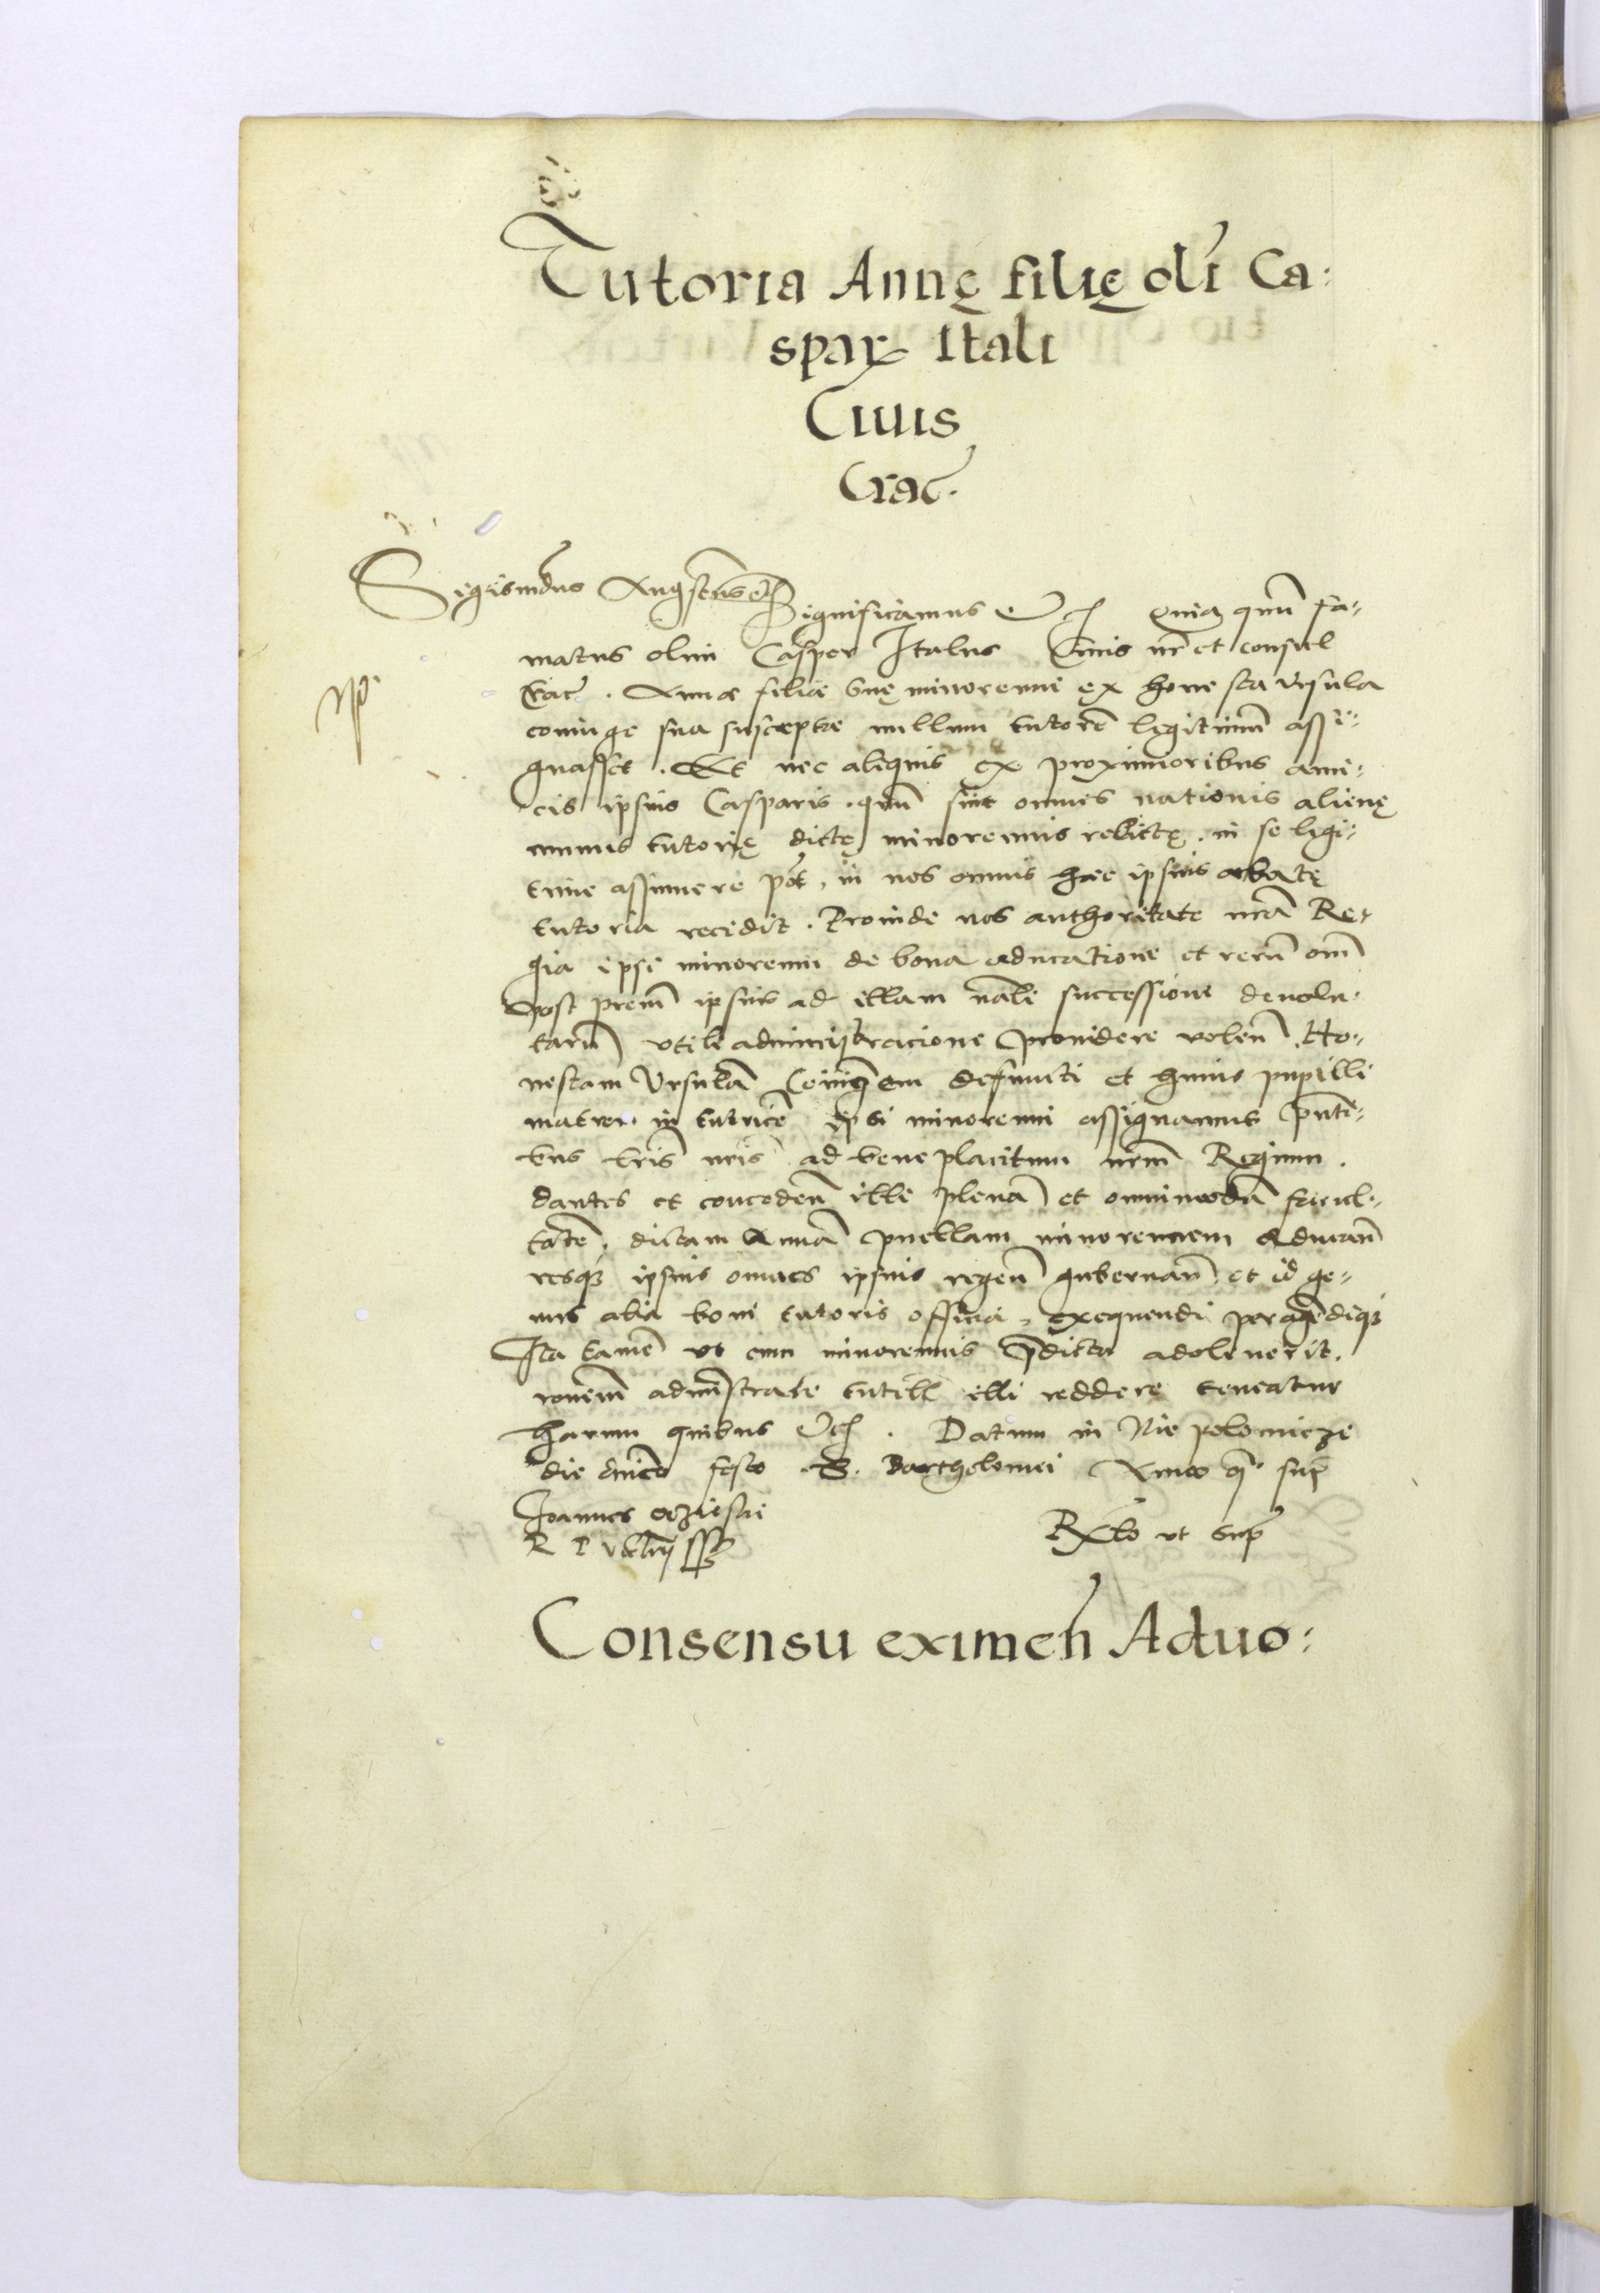 Tutoria Annę filię oli Ca:
spar Itali
Ciuis
Crac.
Sigismdus Augstus etc Significamus etc Quia qum fa-
matus olim Casper Italus Ciuis nr et consul
Crac. Annæ filiæ suę minorenni ex hone sta Vrsula
coniuge sua susceptæ nullum tutore legitimum assi-
gnasset. Et nec aliquis ex proximioribus ami-
cis ipsius Casparis. qum sint omnes nationis alienę
munus tutorię dictę minorennis relictę in se legi-
time assumere pot, in nos omnis hæc ipsius
tutoria recidit. Proinde nos authoritate nra Re-
gia ipsi minorenni de bona educatione et reru om
post prem ipsius ad illam nali successione deuolu-
taru vtili administracione prouidere volen Ho-
nestam Vrsulã Coniugem defuncti et huius pupilli
matrem in tutrice ipsi minorenni assignamus pnti-
bus lris nris ad bene placitum nrm Regium.
dantes et conceden illi plena et omnimoda facul-
tate, dictam Anna puellam minorennem educan
resq ipsius omnes ipsius regen gubernan et id ge-
nus alia boni tutoris officia exequendi peragediq
Ita tame vt cum minorennis pdicta adoleuerit.
ronem admistrate tutelæ illi reddere teneatur
harum quibus etc. Datum in Niepolomicze
die dnico festo S. Bartholomei Anno q sup
Joannes
R P Vctrij sspt
Rlo vt sup
Consensu eximen Aduo: